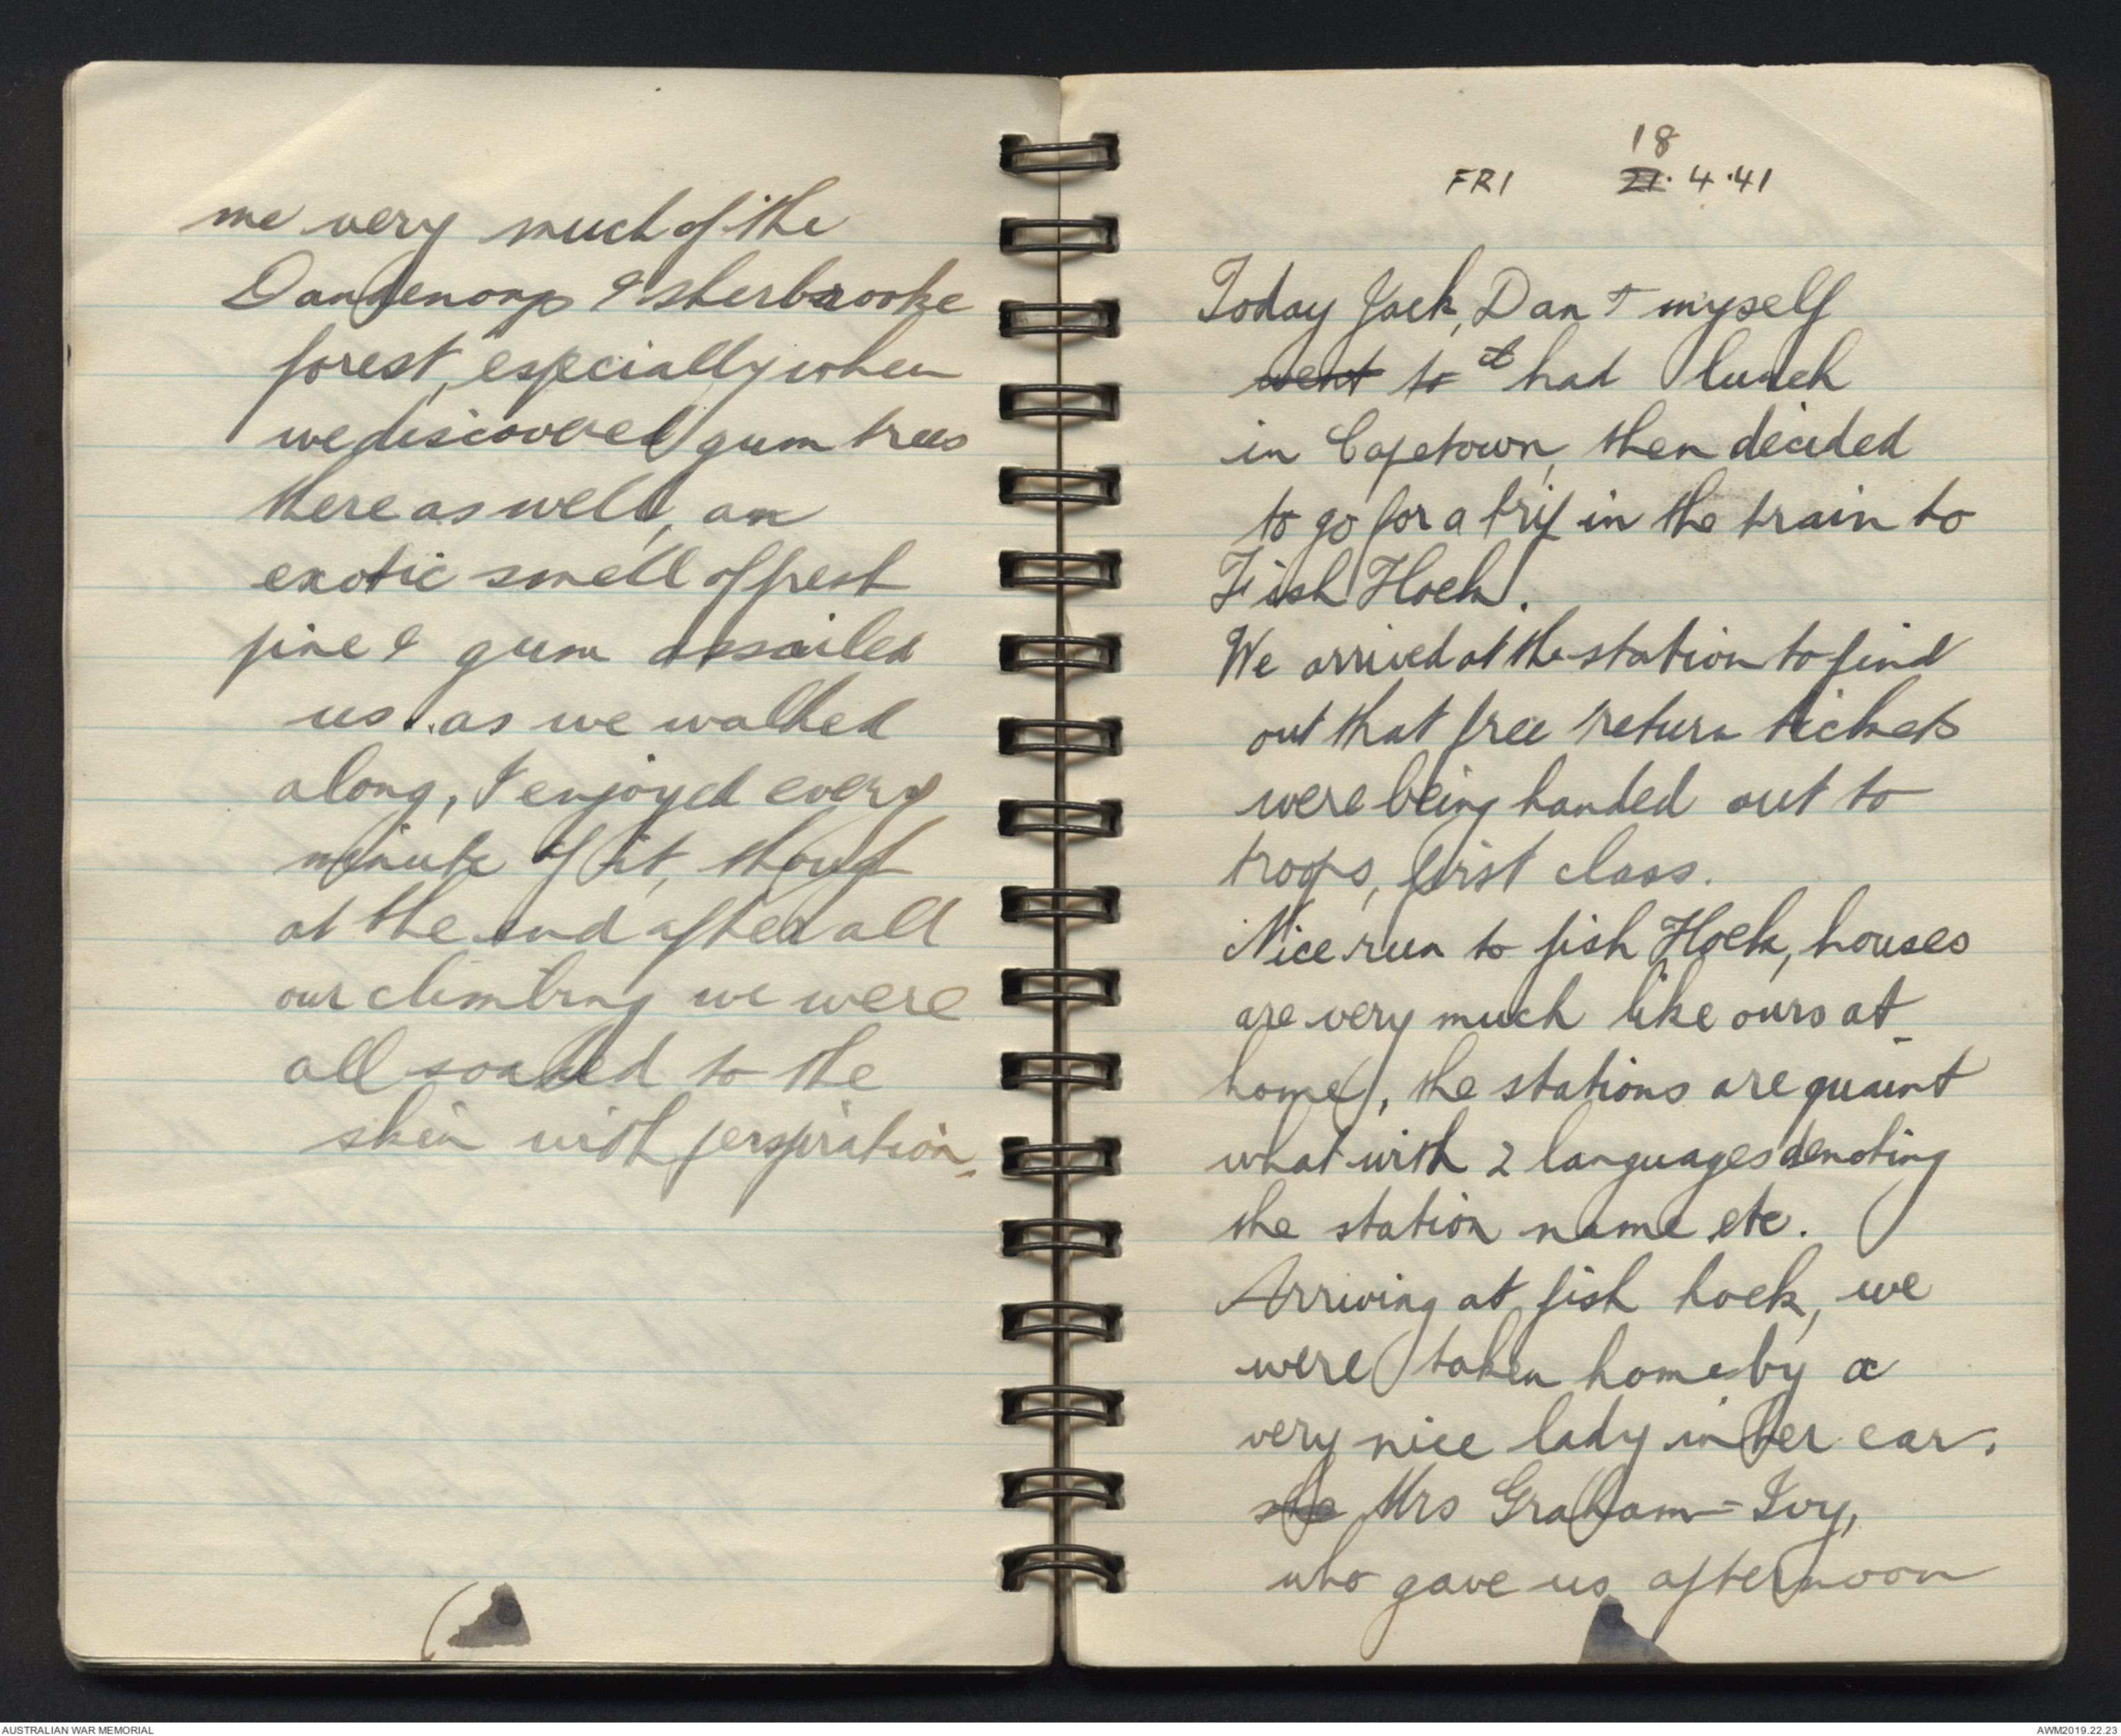 me very much of the
Dandenongs & sherbrooke
forest, especially when
we discovered gum trees
there as well, an
exotic smell of fresh
pine & gum assailed
us..as we walked
along, I enjoyed every
minute of it, though
at the end after all
our climbing we were
all soaked to the
skin with perspiration.
18
FRI 21. 4.41
Today Jack, Dan & myself
went to had lunch
in Capetown, then decided
to go for a trip in the train to
Fish Hoek.
We arrived at the station to find
out that free return tickets
were being handed out to
troops, first class.
Nice run to fish Hoek, houses
are very much like ours at
home, the stations are quaint
what with 2 languages denoting
the station name etc.
Arriving at fish hoek, we
were taken home by a
very nice lady in her car.
she Mrs Graham-Ivy,
who gave us afternoon
AUSTRALIAN WAR MEMORIAL
AWM2019.22.23